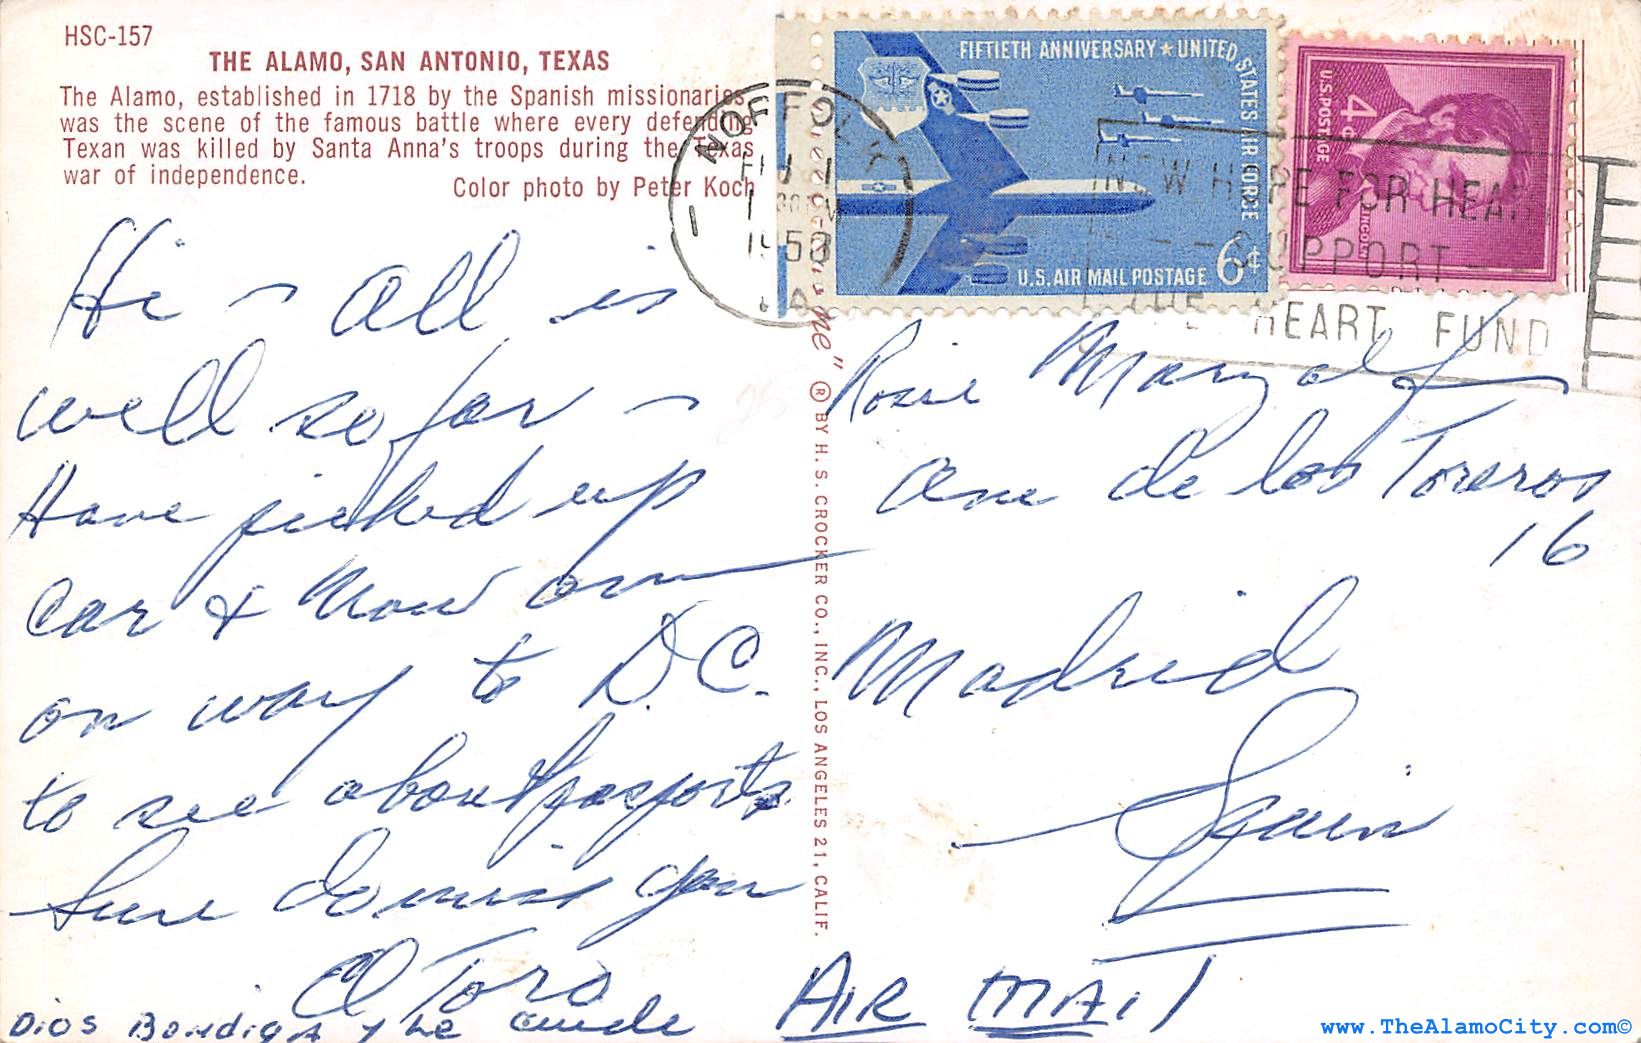 HSC-157
THE ALAMO, SAN ANTONIO, TEXAS
The Alamo, established in 1718 by the Spanish missionaries
was the scene of the famous battle where every defending
Texan was killed by Santa Anna's troops during the Texas
war of independence.
Color photo by Peter Koch
Hi ~ All is
well so far ~
Have picked up
Car & Now am
on way to D.C.
to see about passports
Sure do miss you
El Toro
Dios Bendiga y le cuide
NORFOLK
1
1958
VA
FIFTIETH ANNIVERSARY ★ UNITED STATES AIR FORCE
U.S. AIR MAIL POSTAGE 6¢
U.S. POSTAGE
4¢
LINCOLN
NEW HOPE FOR HEARTS
SUPPORT
YOUR HEART FUND
me"
® BY H. S. CROCKER CO., INC., LOS ANGELES 21, CALIF.
Rosie
Ave de los Toreros
16
Madrid
Spain
AIR MAIL
www.TheAlamoCity.com©